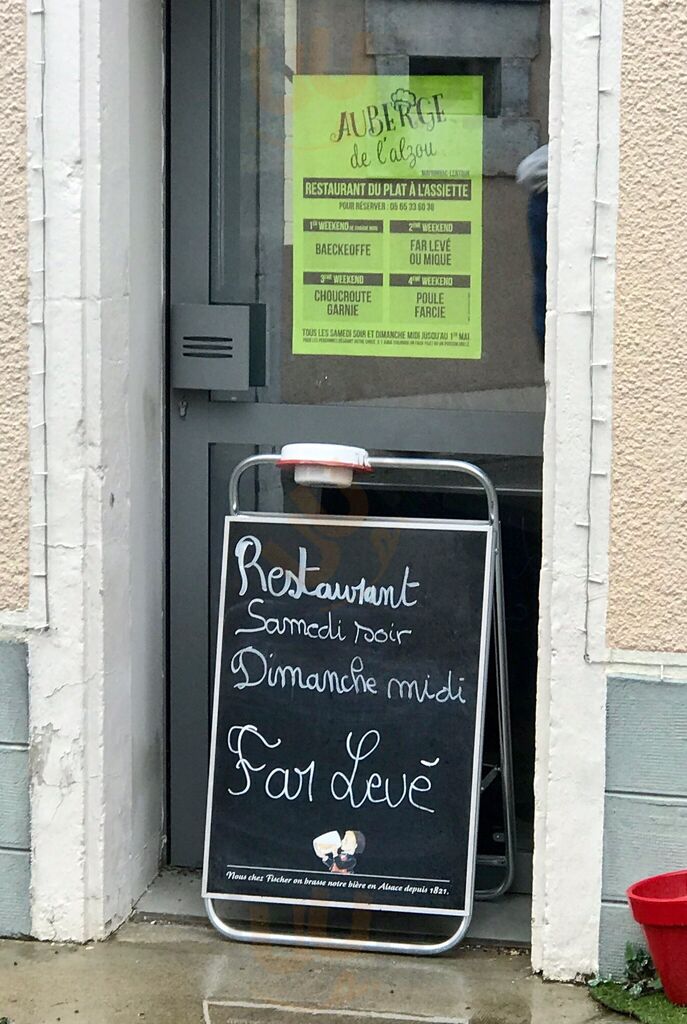 AUBERGE
de l'alzou
RESTAURANT DU PLAT À L'ASSIETTE
POUR RÉSERVER : 05 65 33 60 38
1ER WEEKEND DE CHAQUE MOIS
BAECKEOFFE
2ÈME WEEKEND
FAR LEVÉ
OU MIQUE
3ÈME WEEKEND
CHOUCROUTE
GARNIE
4ÈME WEEKEND
POULE
FARCIE
TOUS LES SAMEDI SOIR ET DIMANCHE MIDI JUSQU'AU 1ER MAI
Restaurant
Samedi soir
Dimanche midi
Far Levé
Nous chez Fischer on brasse notre bière en Alsace depuis 1821.